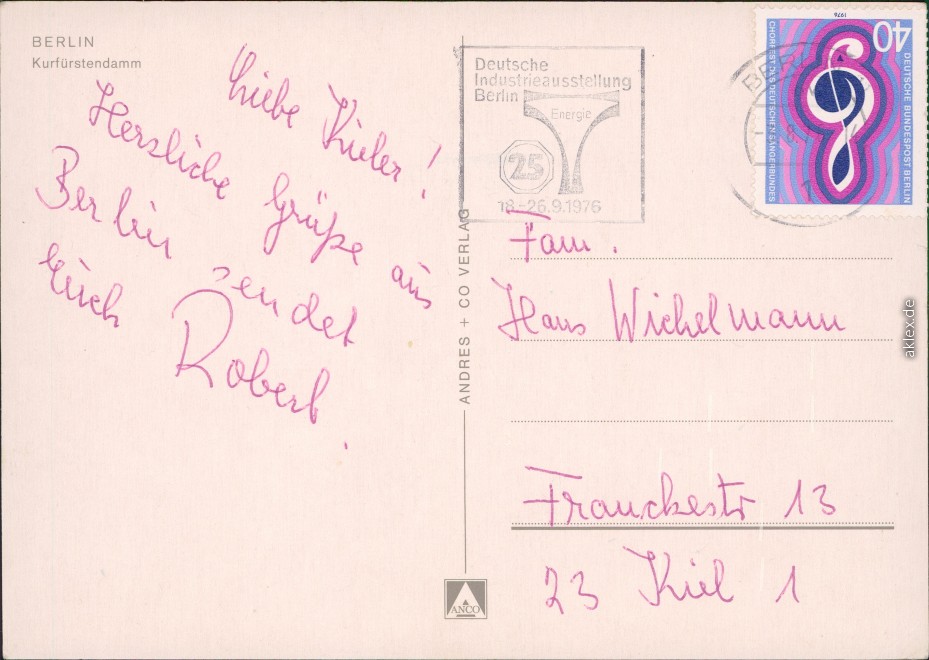 BERLIN
Kurfürstendamm
Liebe Kieler!
Herzliche Grüße aus
Berlin sendet
Euch
Robert.
ANDRES + CO VERLAG
ANCO
Deutsche
Industrieausstellung
Berlin
Energie
25
18.-26.9.1976
BERLIN
1976
40
DEUTSCHE BUNDESPOST BERLIN
CHORFEST DES DEUTSCHEN SÄNGERBUNDES
Fam.
Hans Wichelmann
Franckestr 13
23 Kiel 1
aklex.de